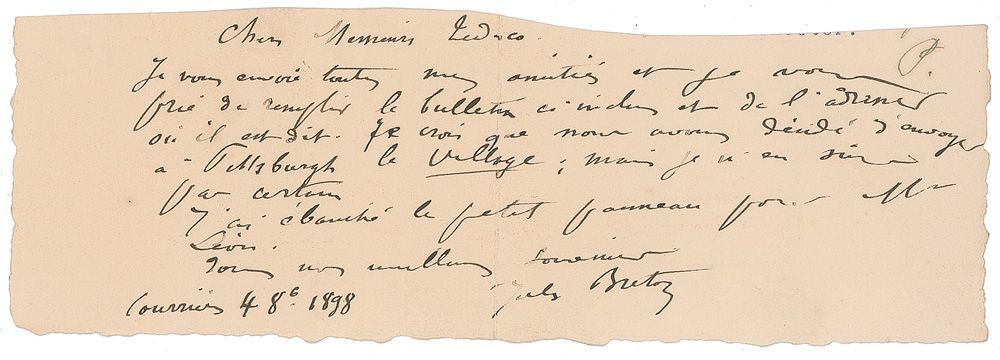 Chers Messieurs Tedesco.
P.
Je vous envoie toutes mes amitiés et je vous
prie de remplir le bulletin ci inclus et de l'adresser
où il est dit. Je crois que nous avons décidé d'envoyer
à Pittsburgh le Village; mais je n'en suis
pas certain
J'ai ébauché le petit panneau pour Mr
Léon.
Tous nos meilleurs souvenirs
Jules Breton
Courrières 4 8b 1898